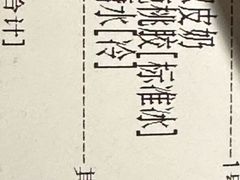 皮奶
桃胶[标准冰]
水[冷]
计]